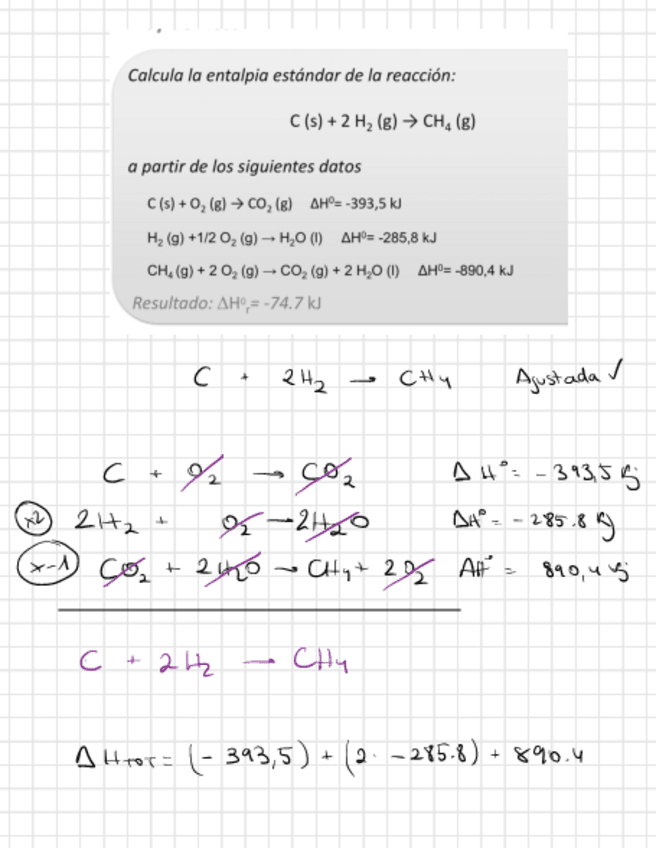 Calcula la entalpia estándar de la reacción:
C (s) + 2 H₂ (g) → CH₄ (g)
a partir de los siguientes datos
C (s) + O₂ (g) → CO₂ (g) ΔH⁰= -393,5 kJ
H₂ (g) +1/2 O₂ (g) → H₂O (l) ΔH⁰= -285,8 kJ
CH₄ (g) + 2 O₂ (g) → CO₂ (g) + 2 H₂O (l) ΔH⁰= -890,4 kJ
Resultado: ΔH⁰ᵣ= -74.7 kJ
C + 2H₂ → CH₄ Ajustada ✓
C + O₂ → CO₂ ΔH° = -393,5 kJ
x2 2H₂ + O₂ → 2H₂O ΔH° = -285.8 kJ
x-1 CO₂ + 2H₂O → CH₄ + 2O₂ ΔH° = 890,4 kJ
C + 2H₂ → CH₄
ΔH TOT = (- 393,5) + (2· -285.8) + 890.4